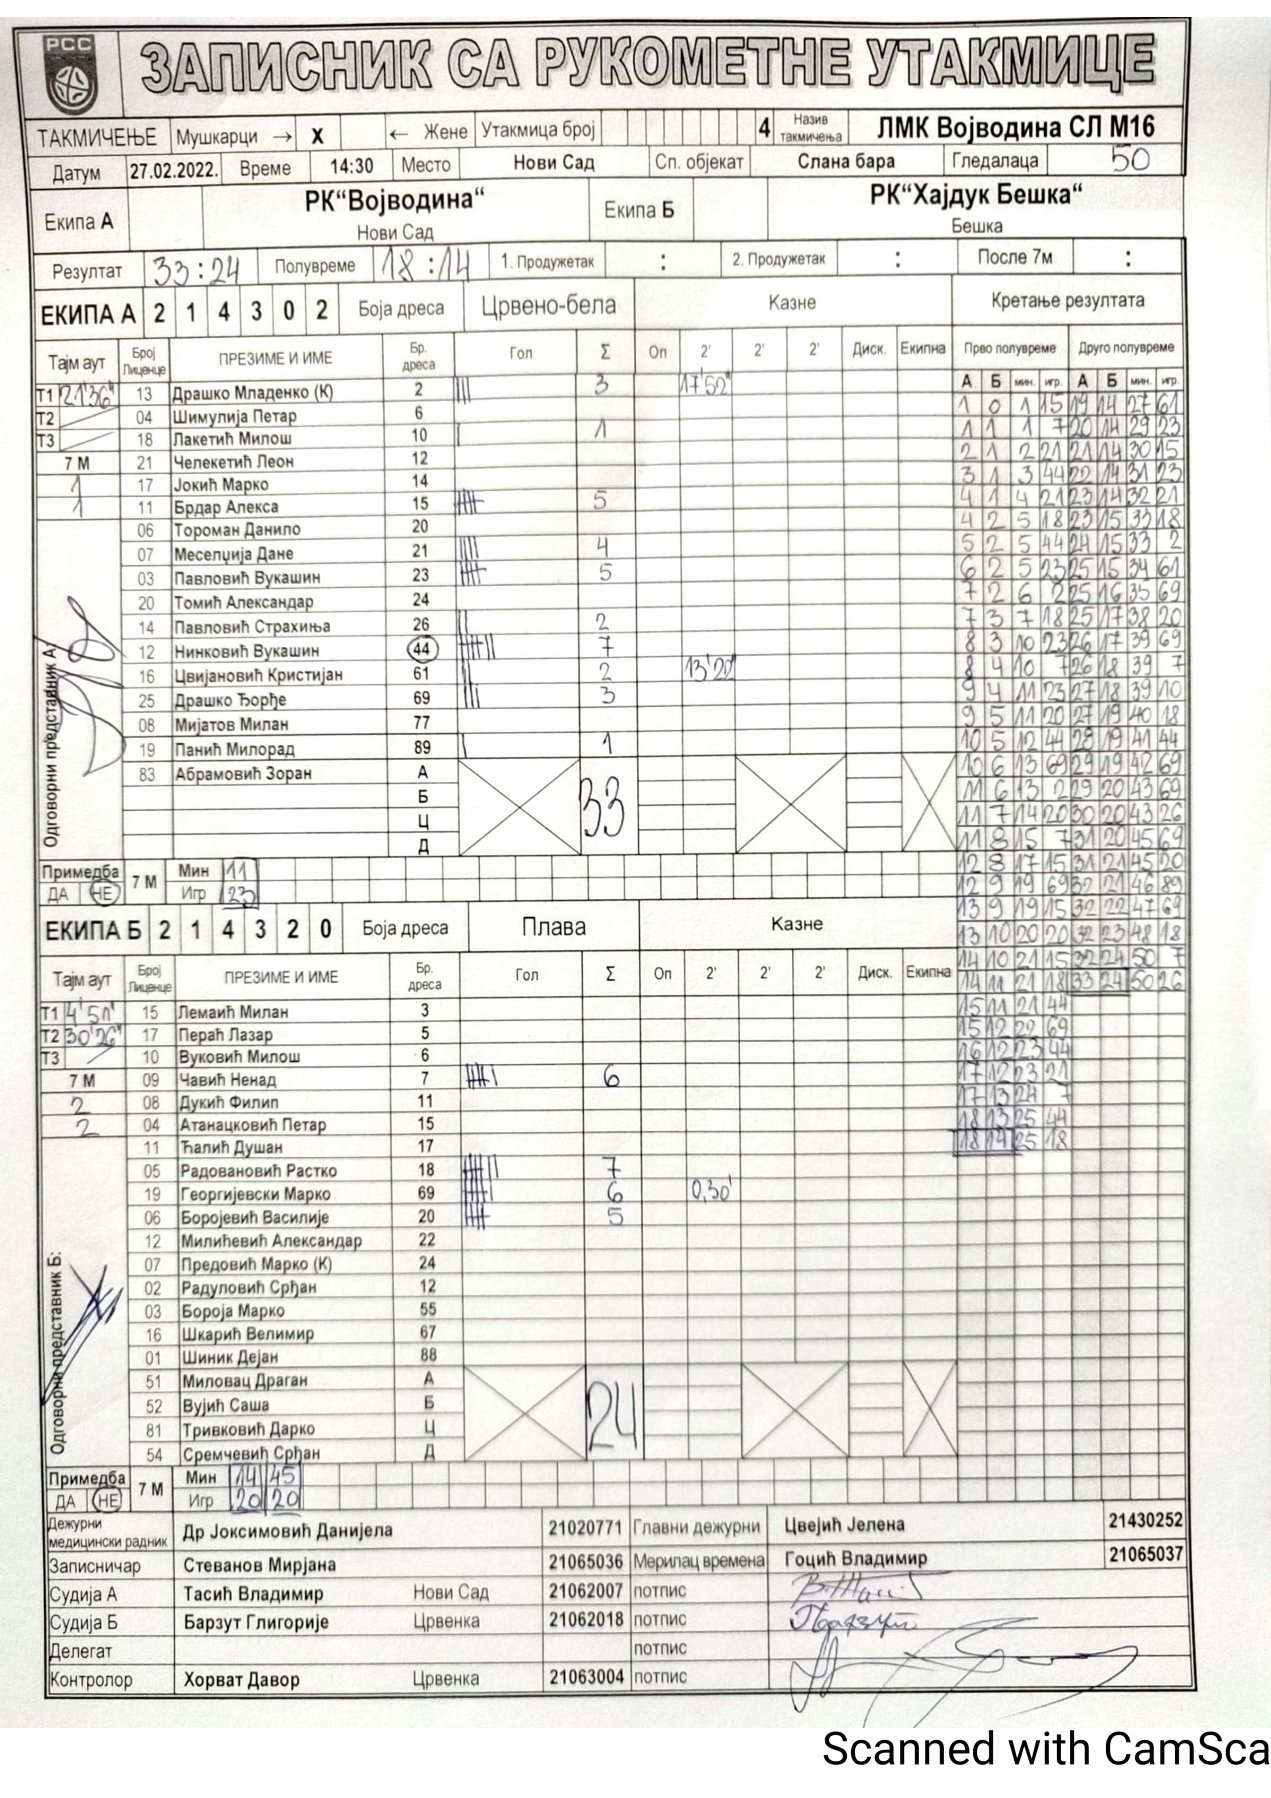 РСС
ЗАПИСНИК СА РУКОМЕТНЕ УТАКМИЦЕ
ТАКМИЧЕЊЕ Мушкарци → X ← Жене Утакмица број 4 Назив такмичења ЛМК Војводина СЛ М16
Датум 27.02.2022. Време 14:30 Место Нови Сад Сп. објекат Слана бара Гледалаца 50
Екипа А РК“Војводина“ Нови Сад Екипа Б РК“Хајдук Бешка“ Бешка
Резултат 33:24 Полувреме 18:14 1. Продужетак : 2. Продужетак : После 7м :
ЕКИПА А 2 1 4 3 0 2 Боја дреса Црвено-бела Казне Кретање резултата
Тајм аут Број Лиценце ПРЕЗИМЕ И ИМЕ Бр. дреса Гол Σ Оп 2' 2' 2' Диск. Екипна Прво полувреме Друго полувреме
А Б мин. игр. А Б мин. игр.
Т1 21'36" 13 Драшко Младенко (К) 2 3 17'52"
1 0 1 15 19 14 27 61
Т2 04 Шимулија Петар 6
1 1 1 7 20 14 29 23
Т3 18 Лакетић Милош 10 1
2 1 2 21 21 14 30 15
7 М 21 Челекетић Леон 12
3 1 3 44 22 14 31 23
1 17 Јокић Марко 14
4 1 4 21 23 14 32 21
1 11 Брдар Алекса 15 5
4 2 5 18 23 15 33 18
06 Тороман Данило 20
5 2 5 44 24 15 33 2
07 Меселџија Дане 21 4
6 2 5 23 25 15 34 61
03 Павловић Вукашин 23 5
7 2 6 2 25 16 35 69
20 Томић Александар 24
7 3 7 18 25 17 38 20
14 Павловић Страхиња 26 2
8 3 10 23 26 17 39 69
12 Нинковић Вукашин 44 7
8 4 10 7 26 18 39 7
16 Цвијановић Кристијан 61 2 13'20"
9 4 11 23 27 18 39 10
25 Драшко Ђорђе 69 3
9 5 11 20 27 19 40 18
08 Мијатов Милан 77
10 5 12 44 28 19 41 44
19 Панић Милорад 89 1
10 6 13 69 29 19 42 69
83 Абрамовић Зоран А
11 6 13 2 29 20 43 69
Б 33
11 7 14 20 30 20 43 26
Ц
11 8 15 7 31 20 45 69
Д
Одговорни представник А:
12 8 17 15 31 21 45 20
Примедба ДА НЕ 7 М Мин 11
12 9 19 69 32 21 46 89
Игр 23
13 9 19 15 32 22 47 69
ЕКИПА Б 2 1 4 3 2 0 Боја дреса Плава Казне
13 10 20 20 32 23 48 18
Тајм аут Број Лиценце ПРЕЗИМЕ И ИМЕ Бр. дреса Гол Σ Оп 2' 2' 2' Диск. Екипна
14 10 21 15 32 24 50 7
14 11 21 18 33 24 50 26
Т1 4'51" 15 Лемаић Милан 3
15 11 21 44
Т2 30'26" 17 Пераћ Лазар 5
15 12 22 69
Т3 10 Вуковић Милош 6
16 12 23 44
7 М 09 Чавић Ненад 7 6
17 12 23 21
2 08 Дукић Филип 11
17 13 24 7
2 04 Атанацковић Петар 15
18 13 25 44
11 Ћалић Душан 17
18 14 25 18
05 Радовановић Растко 18 7
19 Георгијевски Марко 69 6 0,30'
06 Боројевић Василије 20 5
12 Милићевић Александар 22
07 Предовић Марко (К) 24
02 Радуловић Срђан 12
03 Бороја Марко 55
16 Шкарић Велимир 67
01 Шиник Дејан 88
51 Миловац Драган А
52 Вујић Саша Б 24
81 Тривковић Дарко Ц
54 Сремчевић Срђан Д
Одговорни представник Б:
Примедба ДА НЕ 7 М Мин 14 45
Игр 20 20
Дежурни медицински радник Др Јоксимовић Данијела 21020771 Главни дежурни Цвејић Јелена 21430252
Записничар Стеванов Мирјана 21065036 Мерилац времена Гоцић Владимир 21065037
Судија А Тасић Владимир Нови Сад 21062007 потпис
Судија Б Барзут Глигорије Црвенка 21062018 потпис
Делегат потпис
Контролор Хорват Давор Црвенка 21063004 потпис
Scanned with CamSca